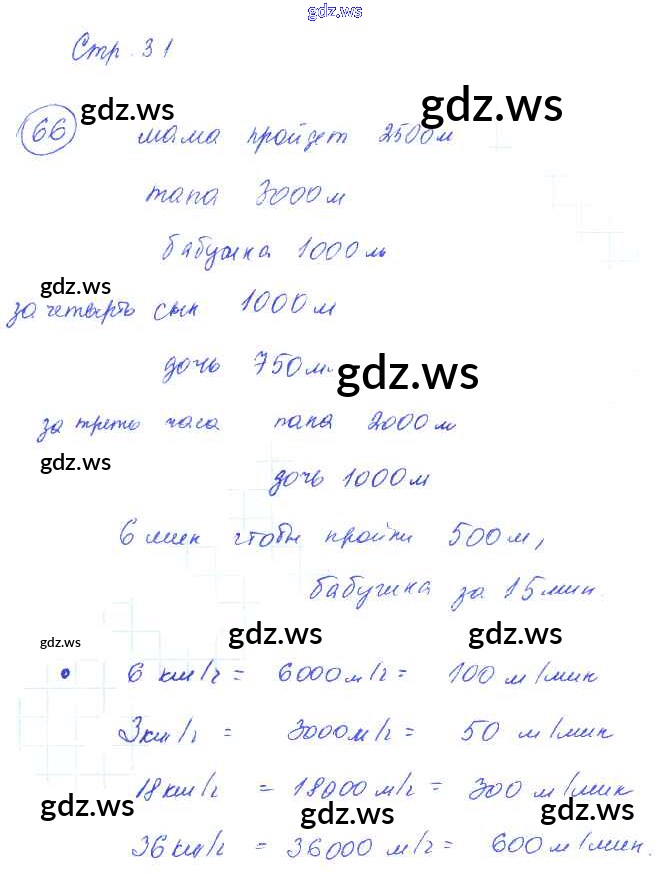 gdz.ws
Стр. 31
66 gdz.ws мама пройдет 2500м gdz.ws
папа 3000м
бабушка 1000м
gdz.ws
за четверть сын 1000м
дочь 750м. gdz.ws
за треть часа папа 2000м
gdz.ws
дочь 1000м
6 мин чтобы пройти 500м,
бабушка за 15мин.
gdz.ws gdz.ws gdz.ws
• 6 км/г = 6000м/г = 100 м/мин
3км/г = 3000м/г = 50 м/мин
18км/г = 18000 м/г = 300 м/мин
gdz.ws gdz.ws gdz.ws
36км/г = 36000 м/г = 600м/мин.